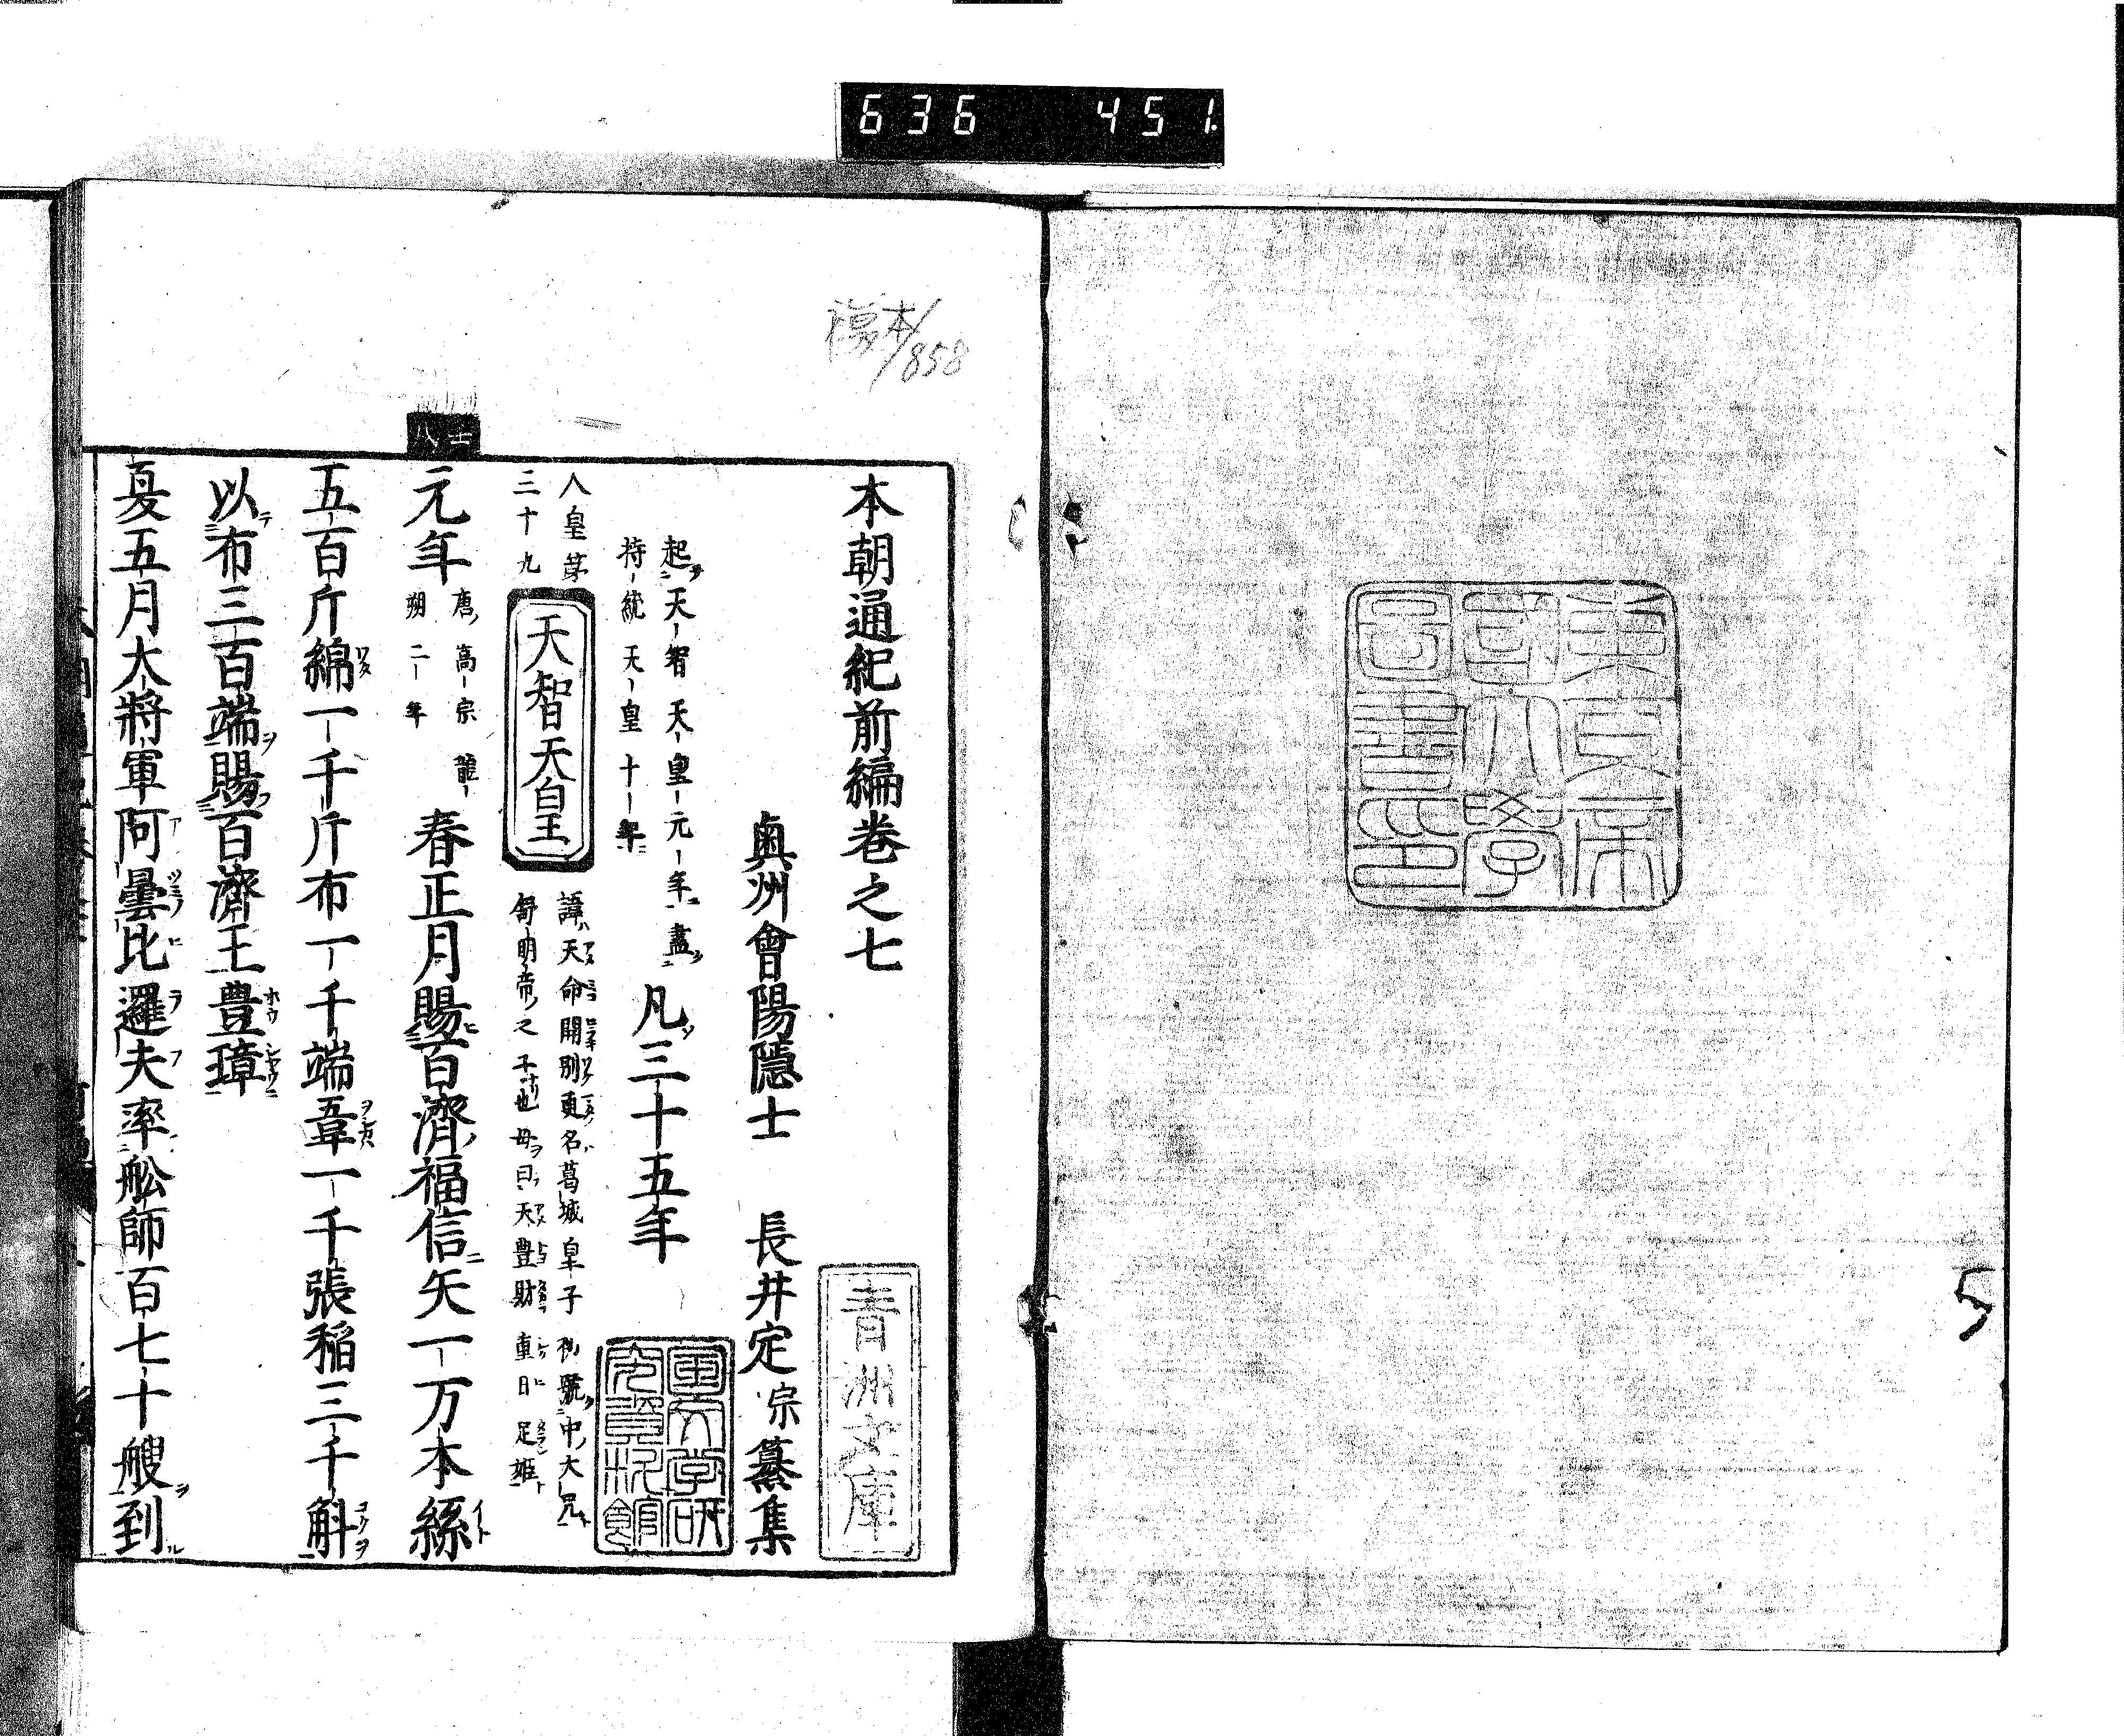 636 451
5
東京帝
國大學
圖書印
複本/858
本朝通紀前編巻之七
青洲文庫
奥州會陽隱士 長井定宗纂集
起天智天皇元年盡
持統天皇十年
凡三十五年
國文学研
究資料館
人皇第
三十九
天智天皇
諱天命開別更名葛城皇子初號中大兄
舒明帝之子也母曰天豊財重日足姫
元年
唐高宗龍
朔二年
春正月賜百濟福信矢一万本絲
五百斤綿一千斤布一千端韋一千張稲三千斛
以布三百端賜百濟王豊璋
夏五月大將軍阿曇比邏夫率舩師百七十艘到